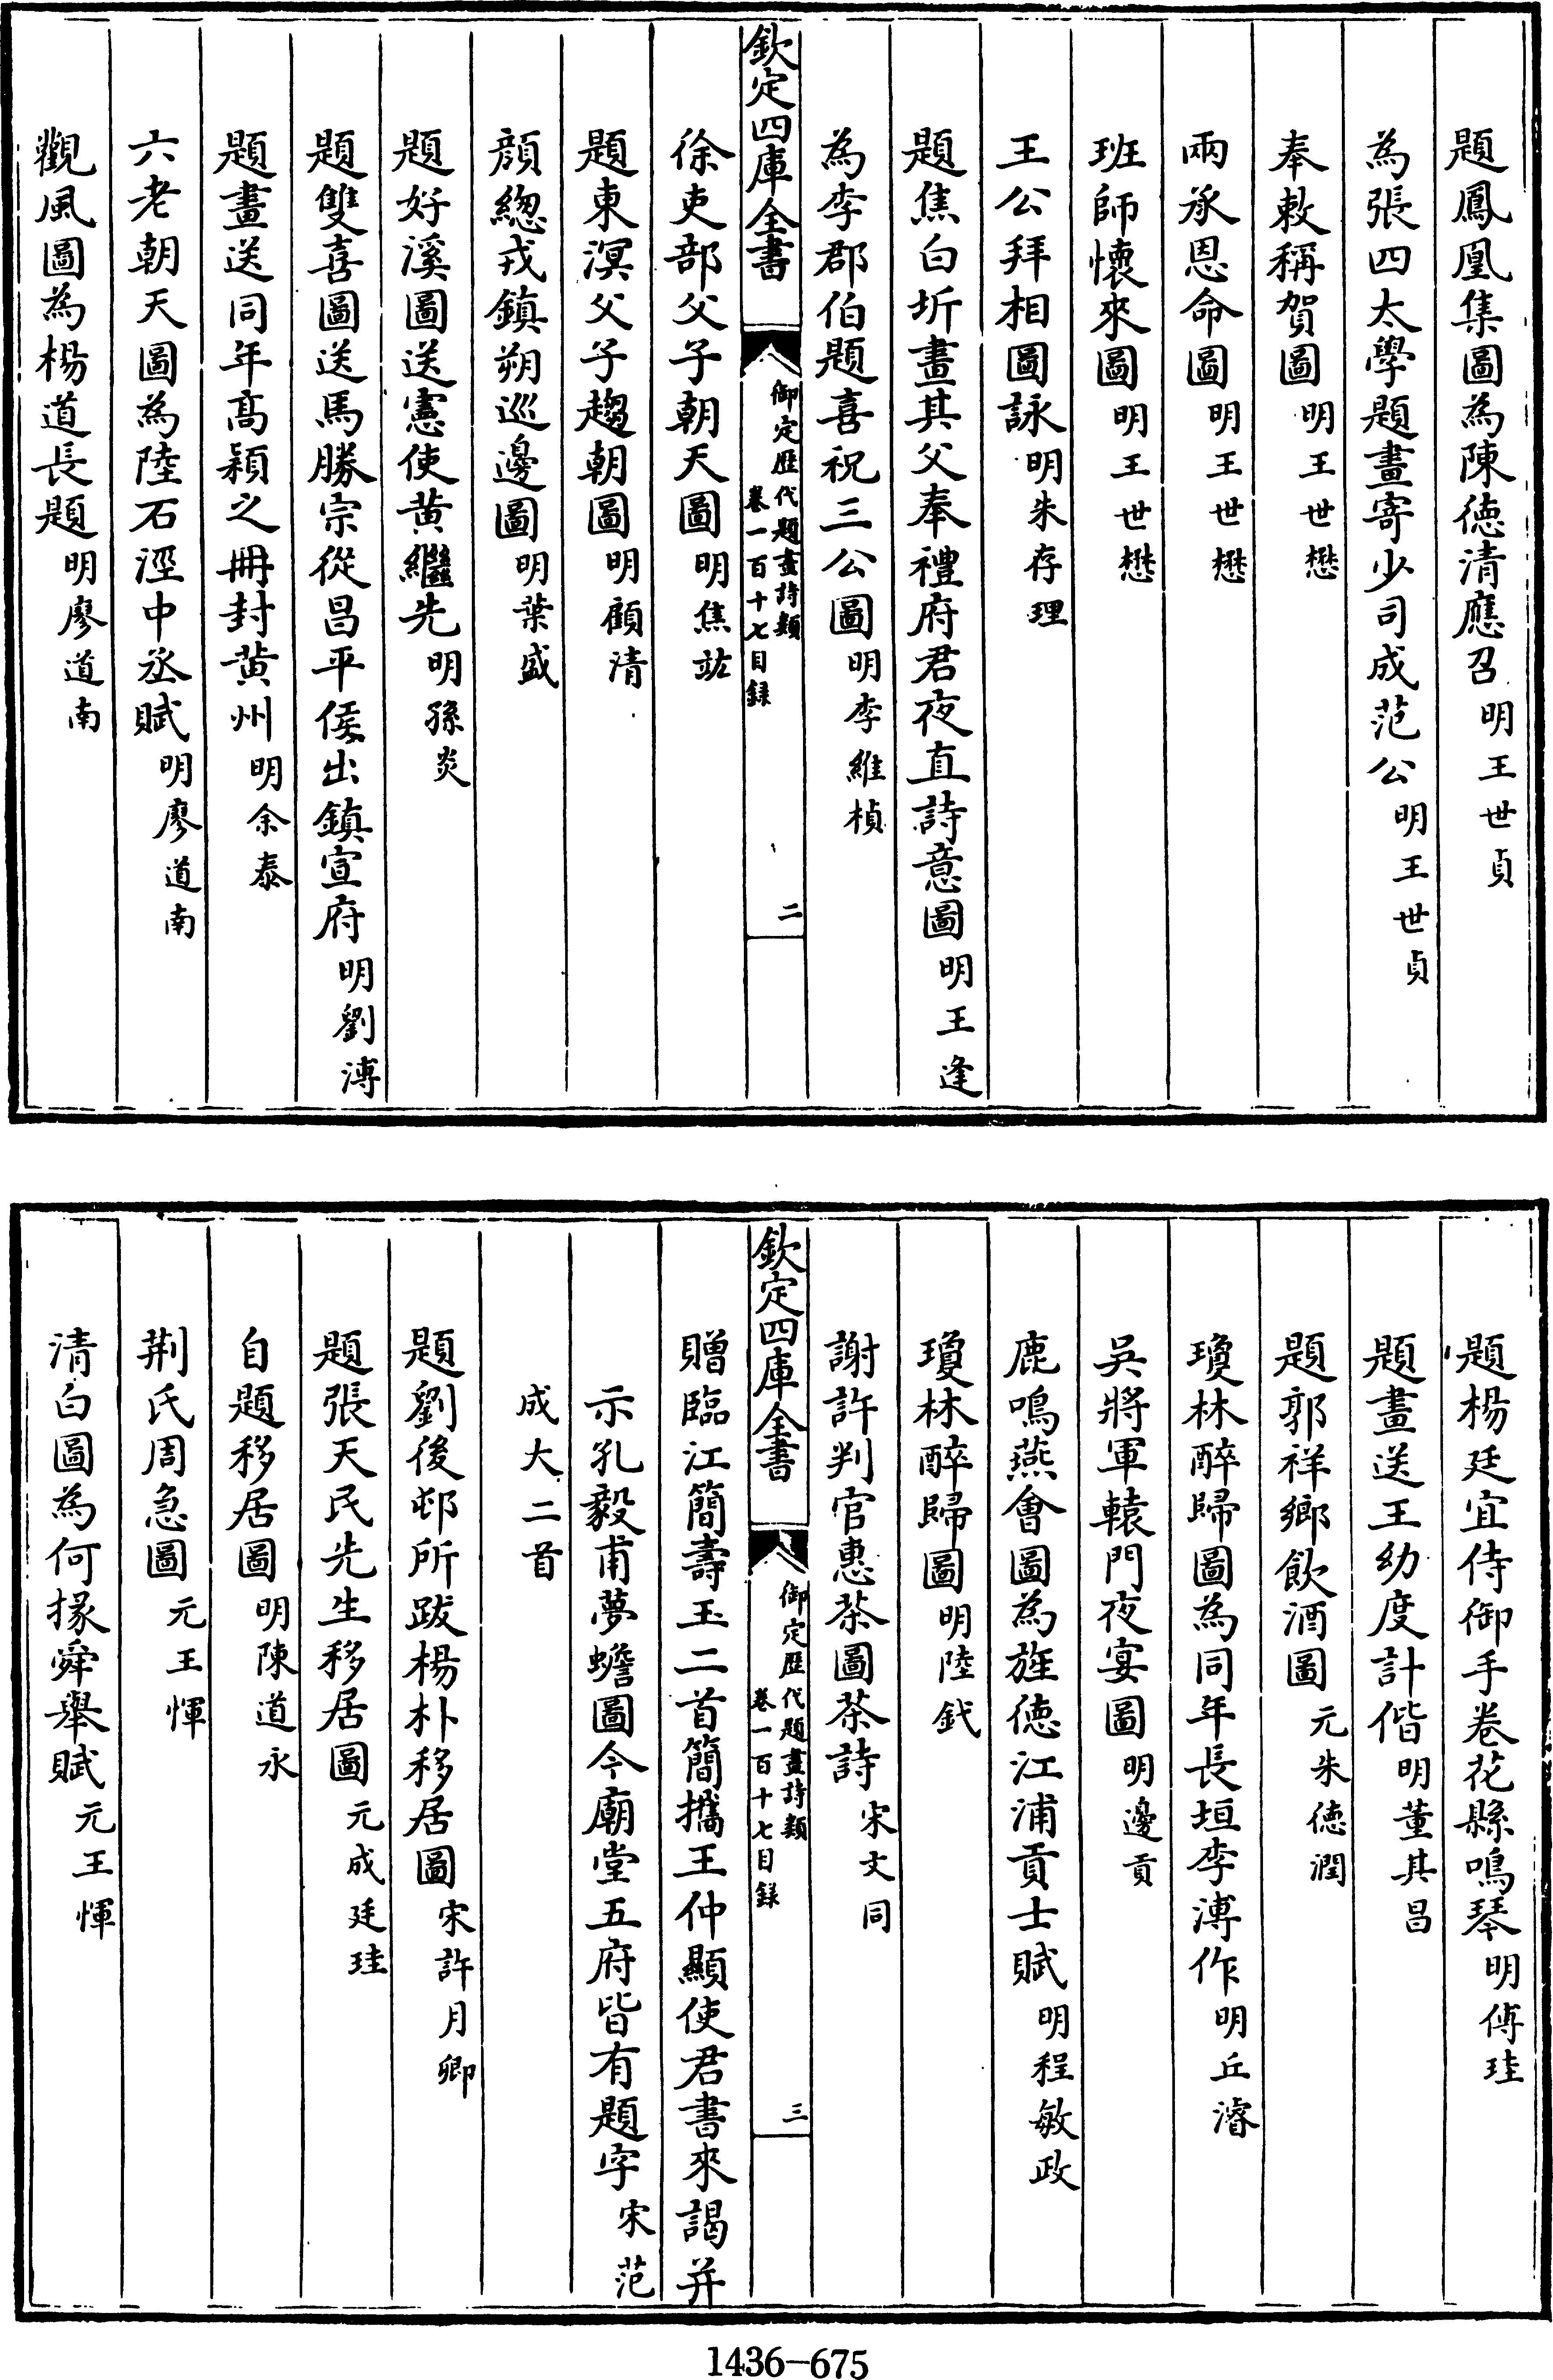 題鳳凰集圖為陳德清應召明王世貞
為張四太學題畫寄少司成范公明王世貞
奉敕稱賀圖明王世懋
兩承恩命圖明王世懋
班師懷來圖明王世懋
王公拜相圖詠明朱存理
題焦白圻畫其父奉禮府君夜直詩意圖明王逢
為李郡伯題喜祝三公圖明李維楨
欽定四庫全書
御定歴代題畫詩類
卷一百十七目録
二
徐吏部父子朝天圖明焦竑
題東溟父子趨朝圖明顧清
顔緫戎鎮朔巡邊圖明葉盛
題好溪圖送憲使黄繼先明孫炎
題雙喜圖送馬勝宗從昌平侯出鎮宣府明劉溥
題畫送同年髙穎之冊封黄州明余泰
六老朝天圖為陸石涇中丞賦明廖道南
觀風圖為楊道長題明廖道南
題楊廷宜侍御手卷花縣鳴琴明傅珪
題畫送王幼度計偕明董其昌
題郭祥鄉飲酒圖元朱德潤
瓊林醉歸圖為同年長垣李溥作明丘濬
吳將軍轅門夜宴圖明邊貢
鹿鳴燕會圖為旌德江浦貢士賦明程敏政
瓊林醉歸圖明陸釴
謝許判官惠茶圖茶詩宋文同
欽定四庫全書
御定歴代題畫詩類
卷一百十七目録
三
贈臨江簡壽玉二首簡攜王仲顯使君書來謁并
示孔毅甫夢蟾圖今廟堂五府皆有題字宋范
成大二首
題劉後邨所跋楊朴移居圖宋許月卿
題張天民先生移居圖元成廷珪
自題移居圖明陳道永
荆氏周急圖元王惲
清白圖為何掾舜舉賦元王惲
1436-675